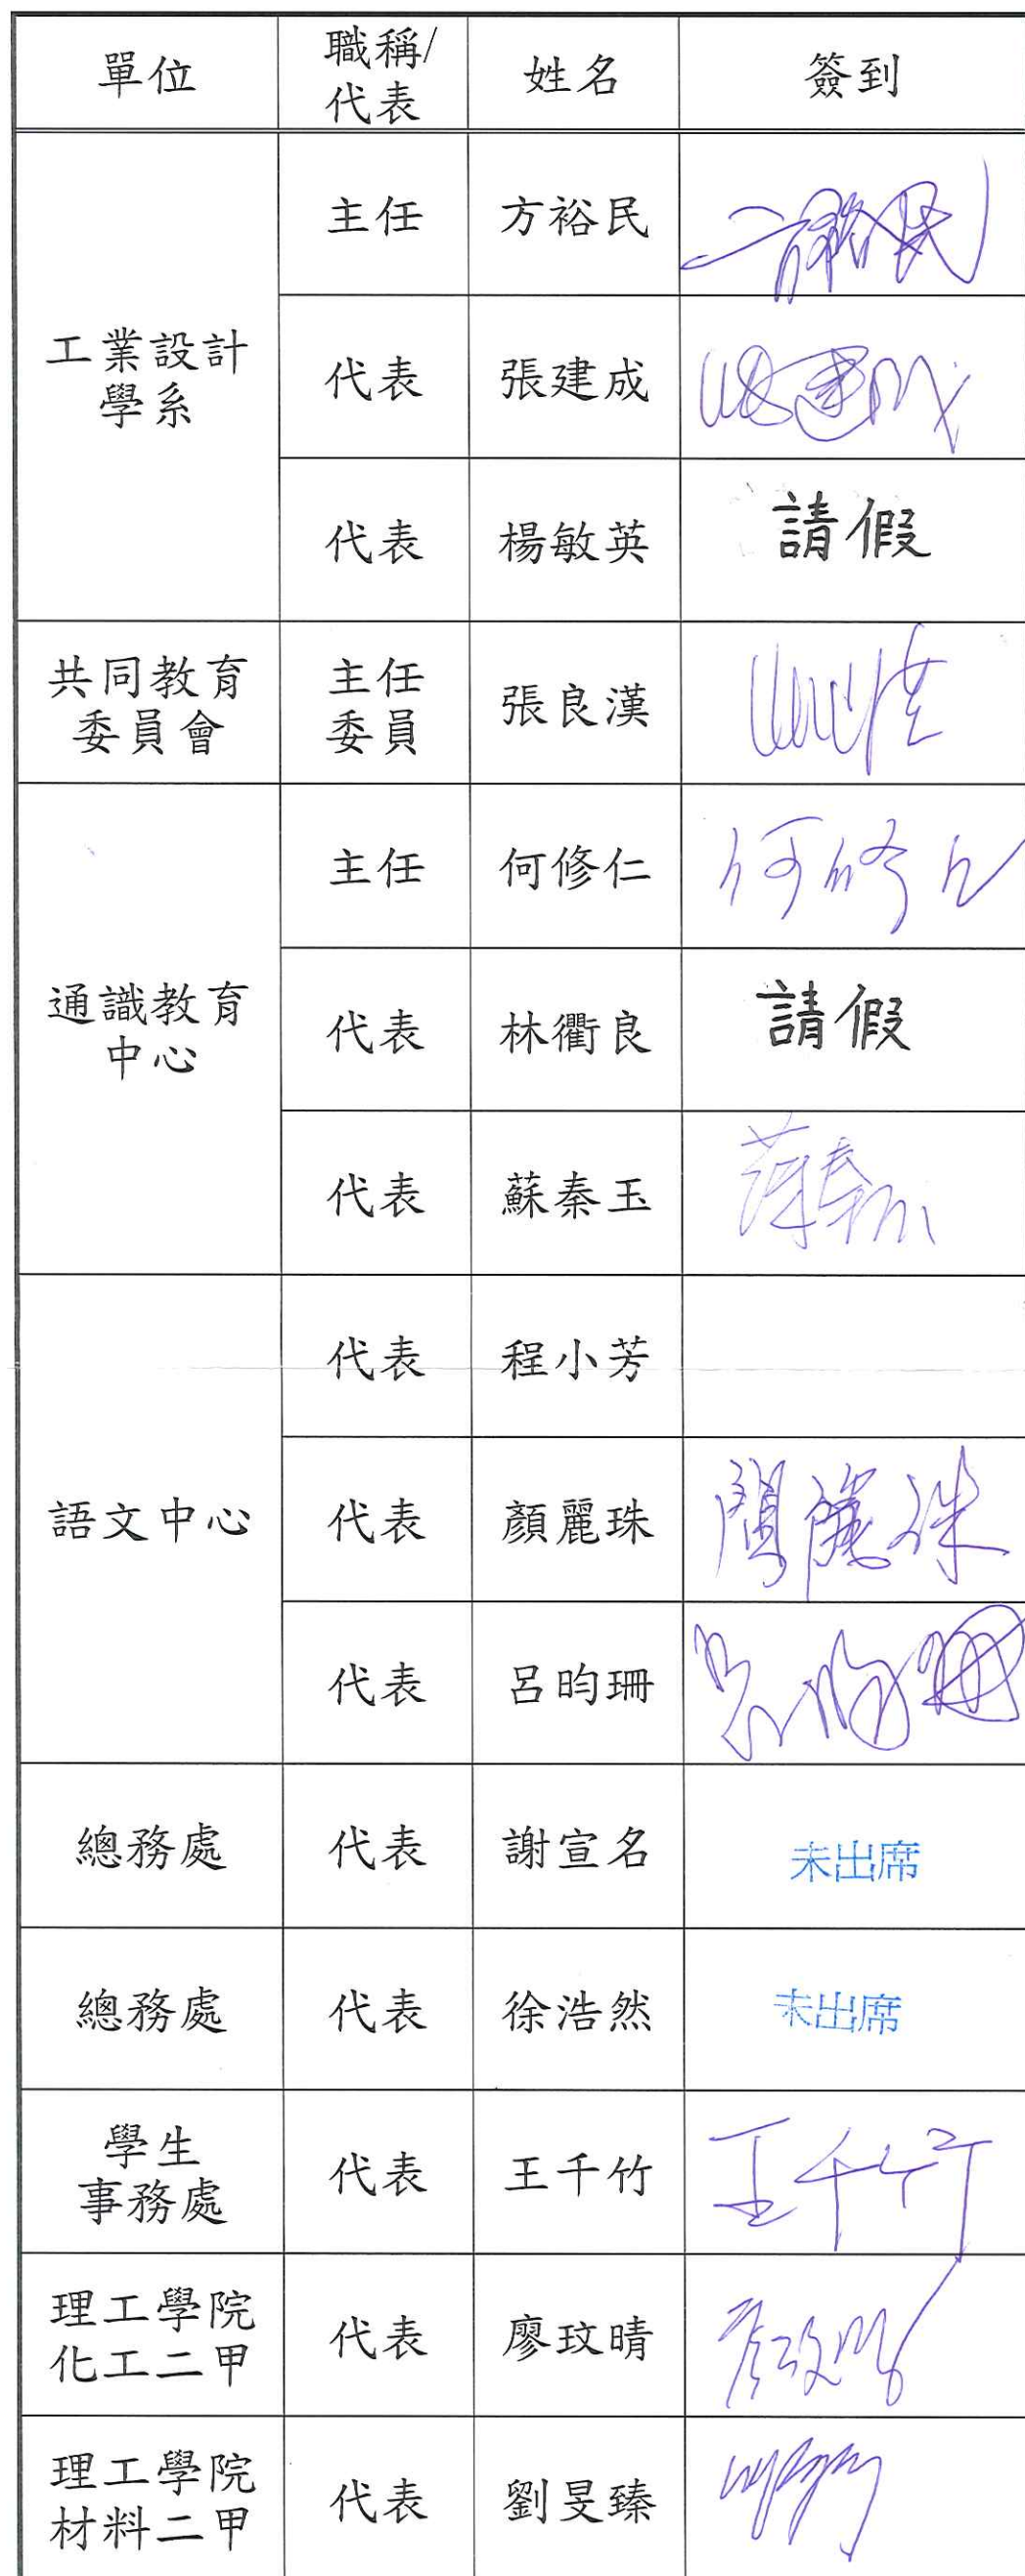 單位 職稱/代表 姓名 簽到
工業設計學系 主任 方裕民 方裕民
代表 張建成 張建成
代表 楊敏英 請假
共同教育委員會 主任委員 張良漢
通識教育中心 主任 何修仁 何修仁
代表 林衢良 請假
代表 蘇秦玉
語文中心 代表 程小芳
代表 顏麗珠 顏麗珠
代表 呂昀珊 呂昀珊
總務處 代表 謝宣名 未出席
總務處 代表 徐浩然 未出席
學生事務處 代表 王千竹 王千竹
理工學院化工二甲 代表 廖玟晴
理工學院材料二甲 代表 劉旻臻